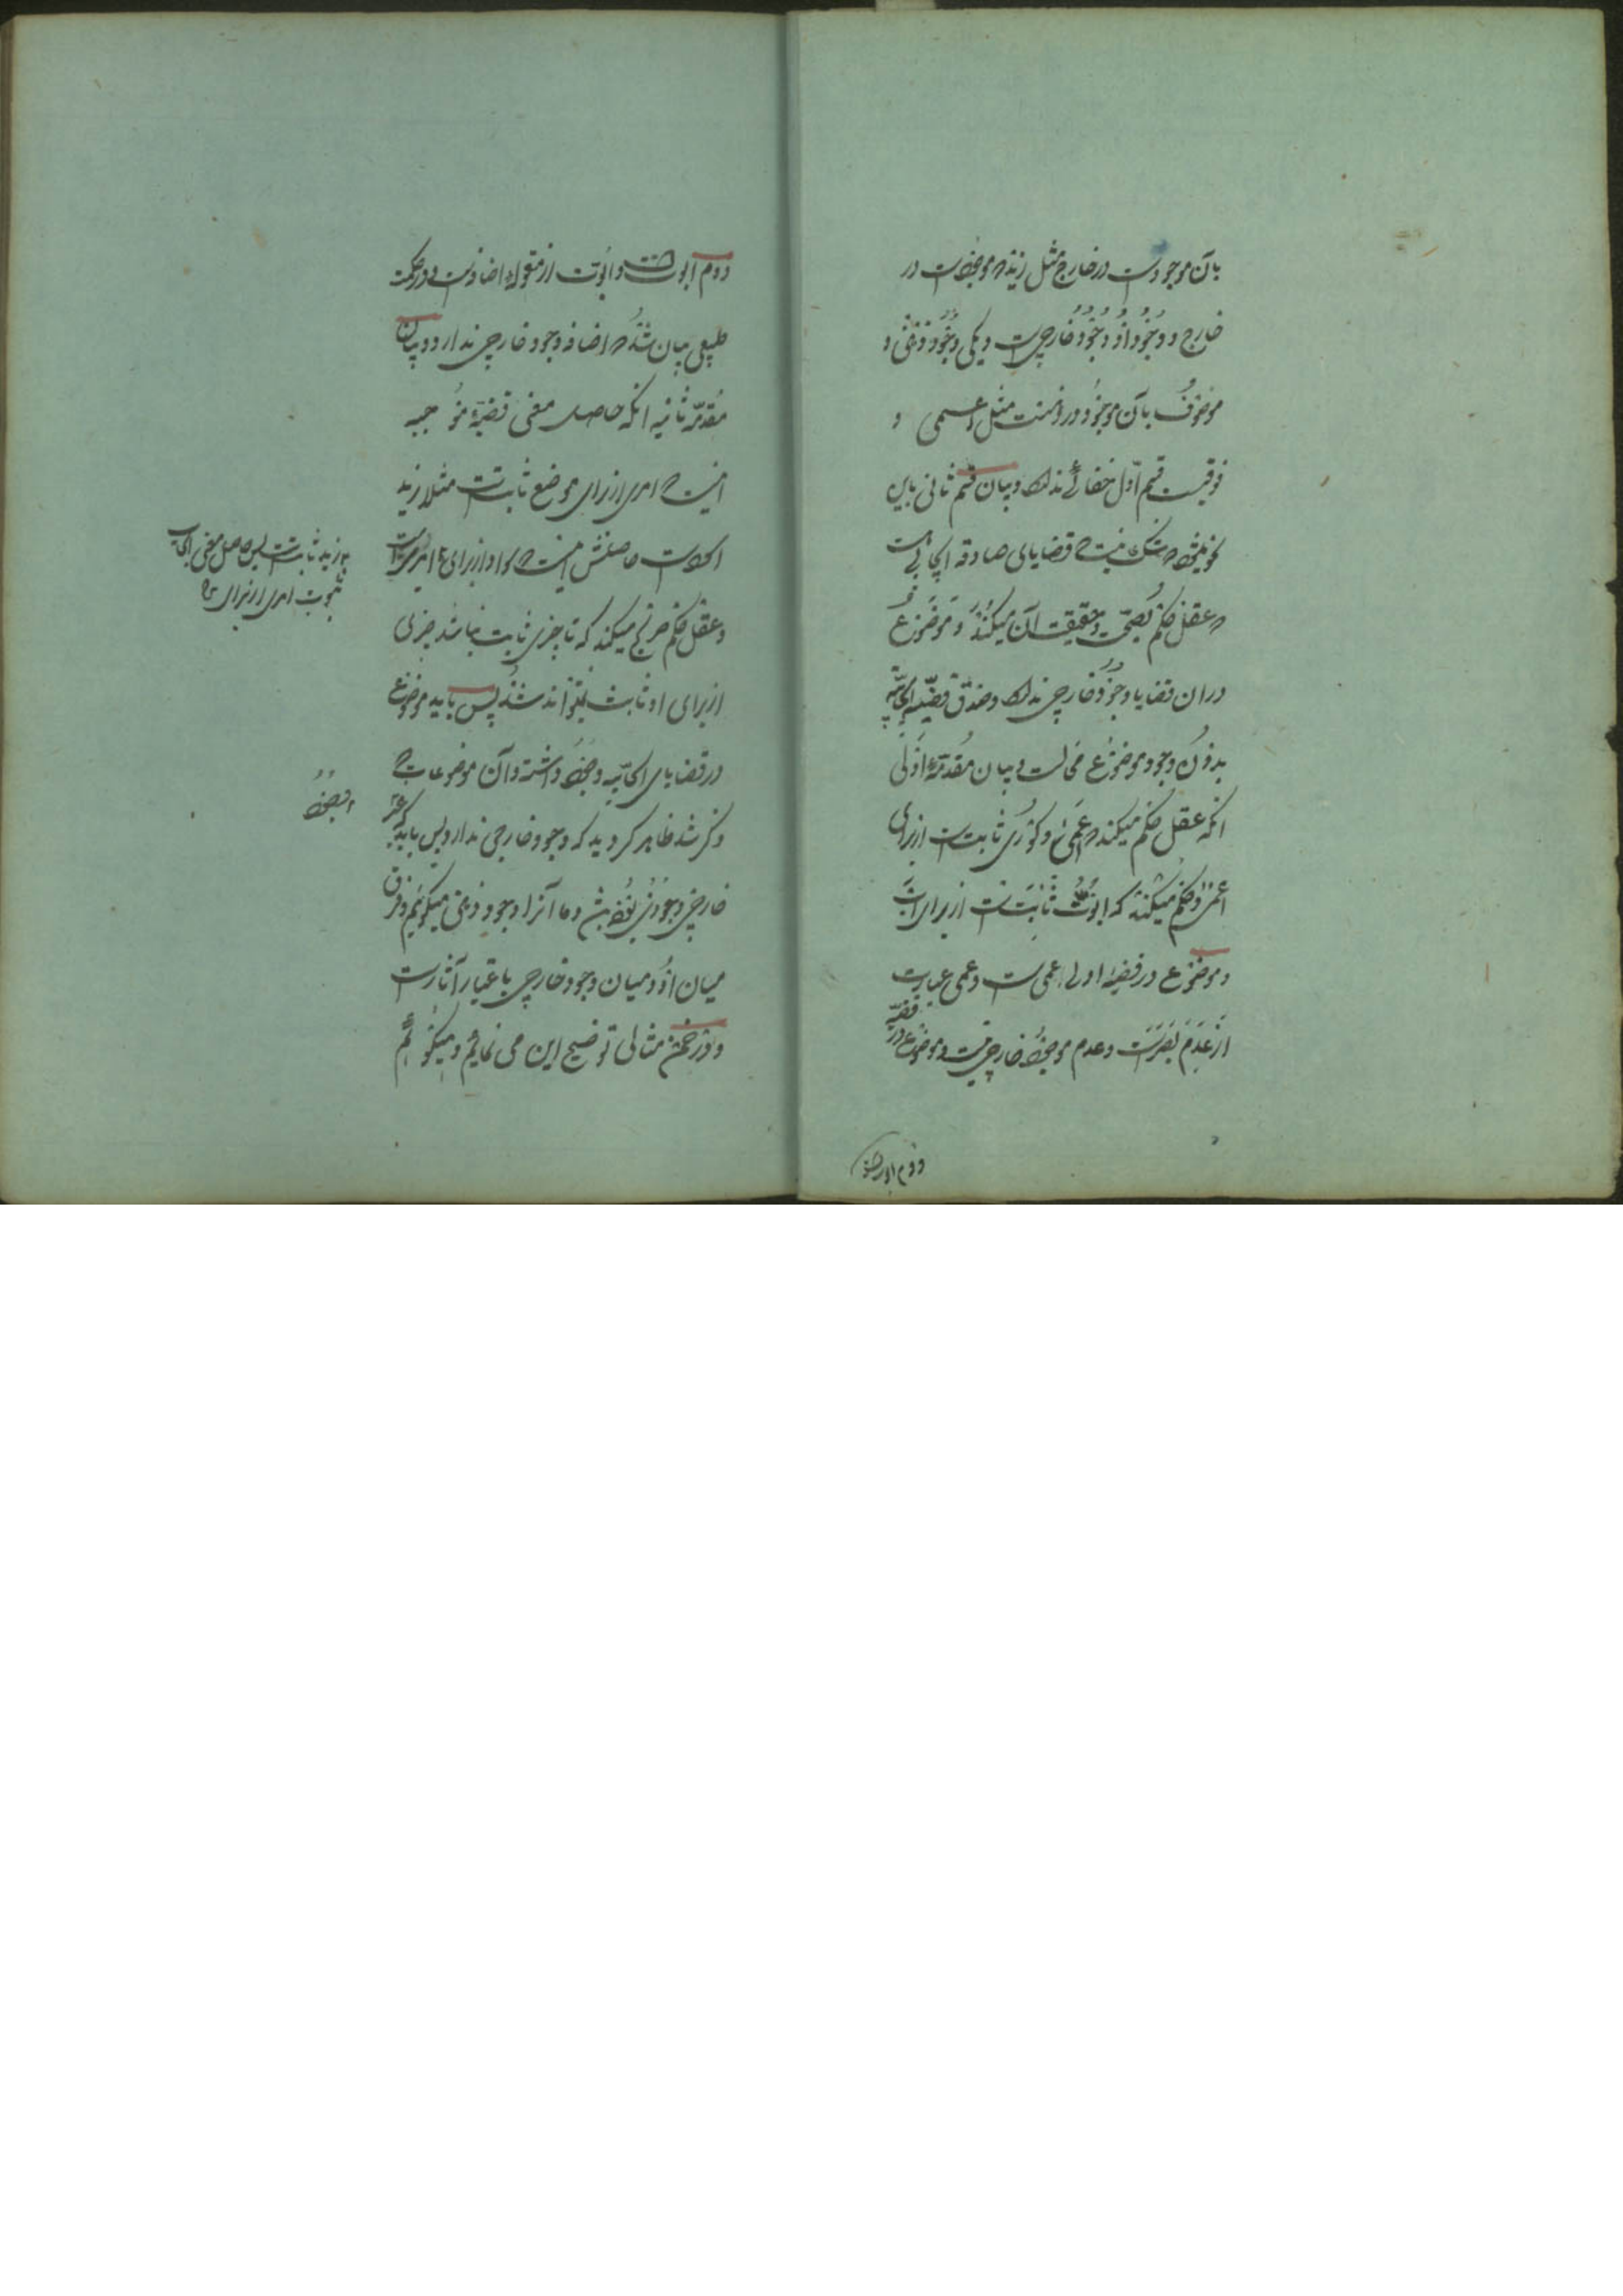 بآن موجودست در خارج مثل زید که موجودست در
خارج و وجود او وجود خارجیست و یکی وجود ذهنی و
موصوف بآن موجود در ذهنست مثل اعمی و
فوقیت قسم اول خفائے ندارد و بیان قسم ثانی باین
نحو میشود که شک نیست که قضایای صادقه ایجابی هست
که عقل حکم بصحت و حقیقت آن میکند و موضوع
در ان قضایا وجود خارجی ندارد و صدق قضیه ایجابیه
بدون وجود موضوع محالست و بیان مقدمه اولی
انکه عقل حکم میکند که عمی و کوری ثابتست از برای
اعمی و حکم میکند که ابوت ثابتست از برای اب
و موضوع در قضیه اولی عمی است و عمی عبارت
از عدم بصرست و عدم موجود خارجی نیست و موضوع در قضیه
دوم ابوت
دوم ابوتست و ابوت از مقوله اضافتست و در حکمت
طبیعی بیان شد که اضافه وجود خارجی ندارد و بیان
مقدمه ثانیه انکه حاصل معنی قضیه موجبه
اینست که امری از برای موضع ثابتست مثلا زید
حاصلش اینست که از برای
بزید ثابتست پس حاصل معنی ایجاب
ثبوت امری از برای
و عقل حکم صریح میکند که تا چیزی ثابت نباشد چیزی
از برای او ثابت نتواند شد پس باید موضوع
در قضایای ایجابیه وجود داشته و آن موضوعات که
ذکر شد ظاهر کردید که وجود خارجی ندارد پس باید که غیر
خارجی وجودی بوده باشد و ما آنرا وجود ذهنی میکوئیم و فرق
میان او و میان وجود خارجی باعتبار آثارست
و در ضمن مثالی توضیح این می نمائیم و میکوئیم